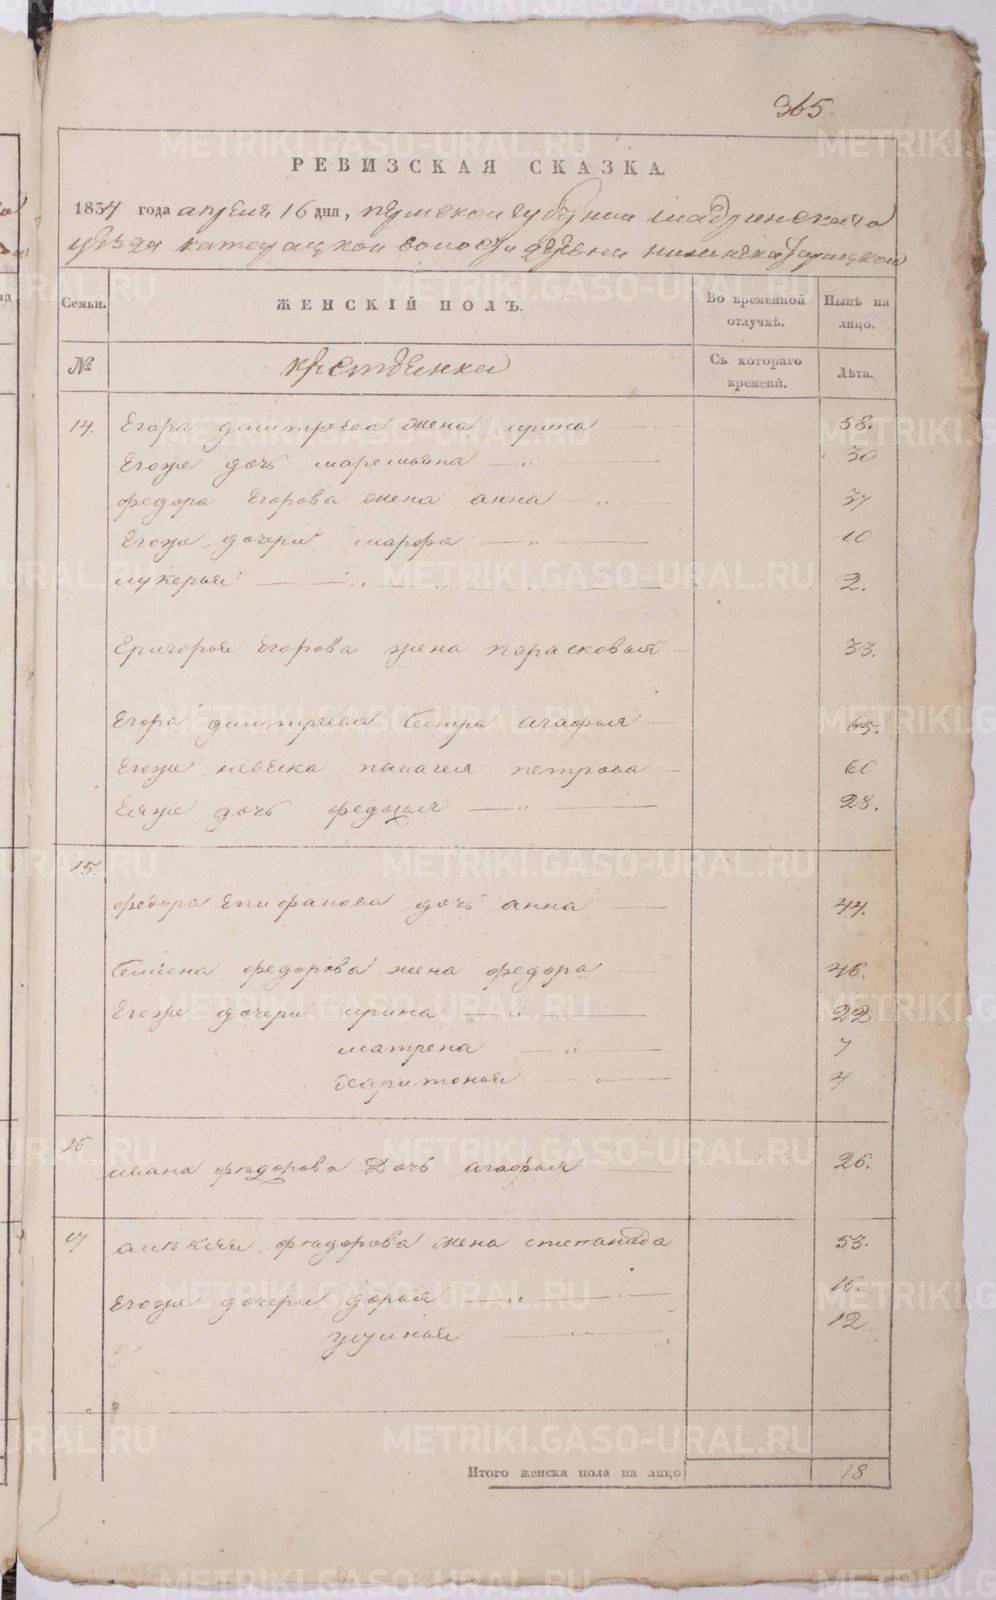 365
РЕВИЗСКАЯ СКАЗКА.
1834 года апреля 16 дня, пермской губернии шадринскаго
уезда катайской волости деревни
Семьи. ЖЕНСКІЙ ПОЛЪ. Во временной отлучкѣ. Нынѣ на лицо.
№ крестьянки Съ котораго времени. Лѣта.
14. Егора дмитреева жена ирина 58.
Егоже дочь маремьяна 30
федора Егорова жена анна 37
Егоже дочери марфа 10
лукерья 2.
Григорья Егорова жена парасковья 33.
Егора дмитреева сестра агафья 65.
Егоже невеска палагея петрова 60
Еяже дочь федосья 28.
15.
федора Епифанова дочь анна 44.
семіона федорова жена федора 46.
Егоже дочери ирина 22
матрена 7
харитонья 4
16
ивана фіодорова Дочь агафья 26.
17 алѣксея фіодорова жена степанида 53.
Егоже дочери дарья 16.
12
Итого женска пола на лицо 18
METRIKI.GASO-URAL.RU